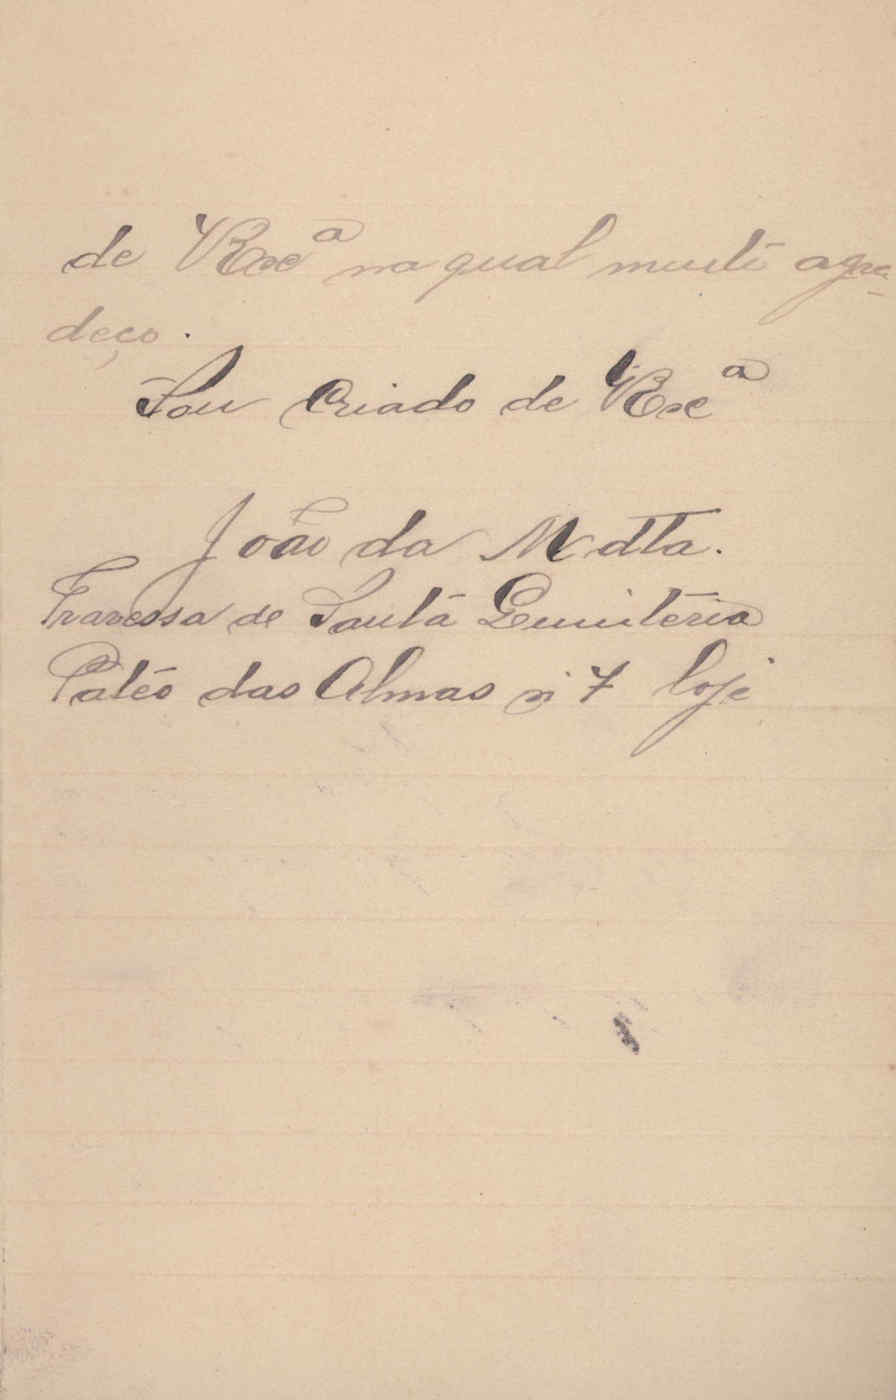 de VExcª na qual muito agra-
deço.
Sou Criado de VExcª
João da Motta.
Travessa de Santa Quiteria
Patéo das Almas nº 7 loje